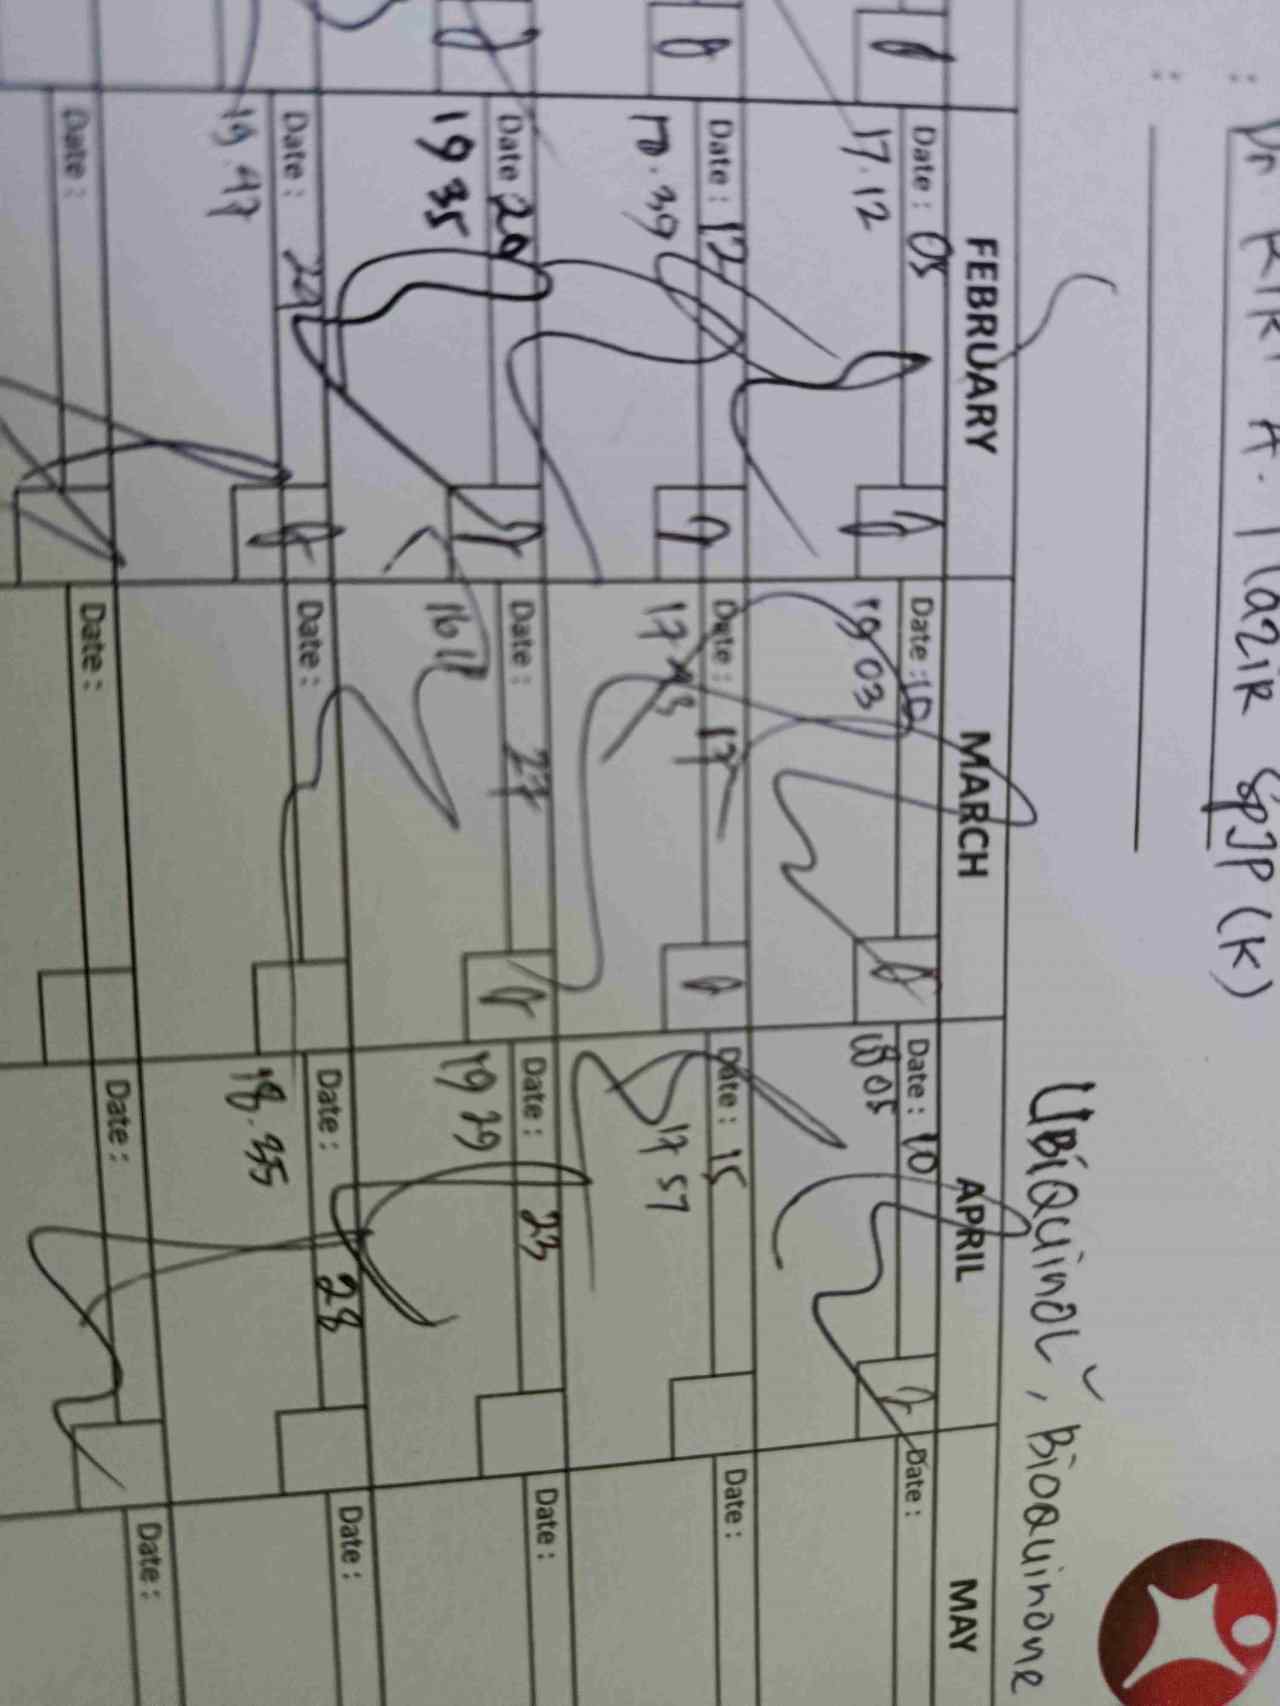 : Dr RIKI A. NAZIR SpJP (K)
:
UBIQUINOL, BIOQUINONE
FEBRUARY MARCH APRIL MAY
Date : 05 Date : 10 Date : 10 Date :
17.12 19 03 18 05
Date : 12 Date : 17 Date : 15 Date :
17 57
Date : 20 Date : 27 Date : 23 Date :
19 35 16 11 19 29
Date : 29 Date : Date : 28 Date :
19.47 18.35
Date : Date : Date : Date :